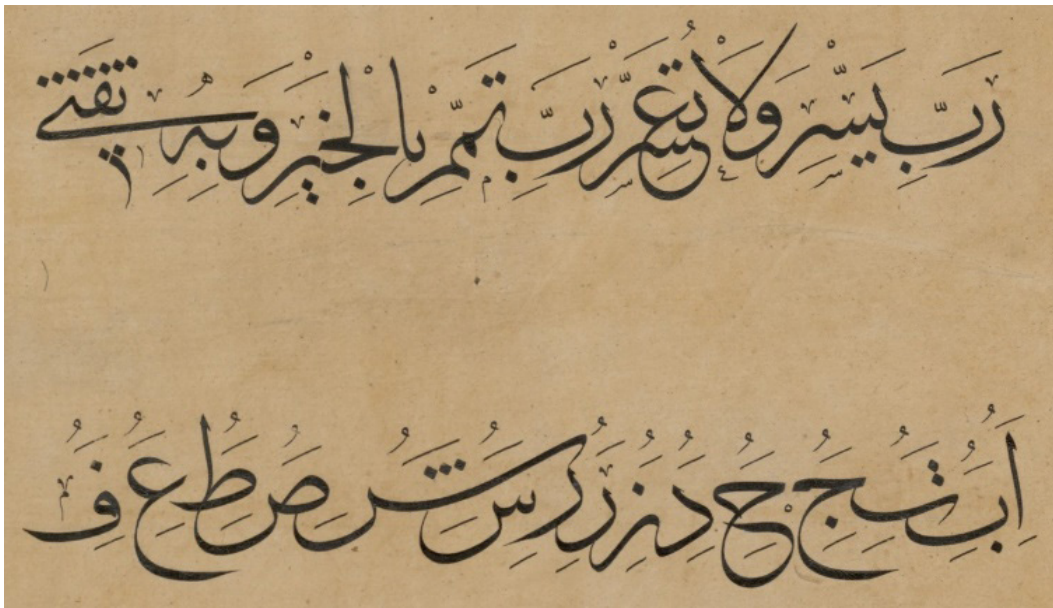 رَبِّ يَسِّرْ وَلَا تُعَسِّرْ رَبِّ تَمِّمْ بِالْخَيْرِ وَبِهِ ثِقَتِي
ا ب ت ج ح د ز ر ر س ش ص ط ع ف